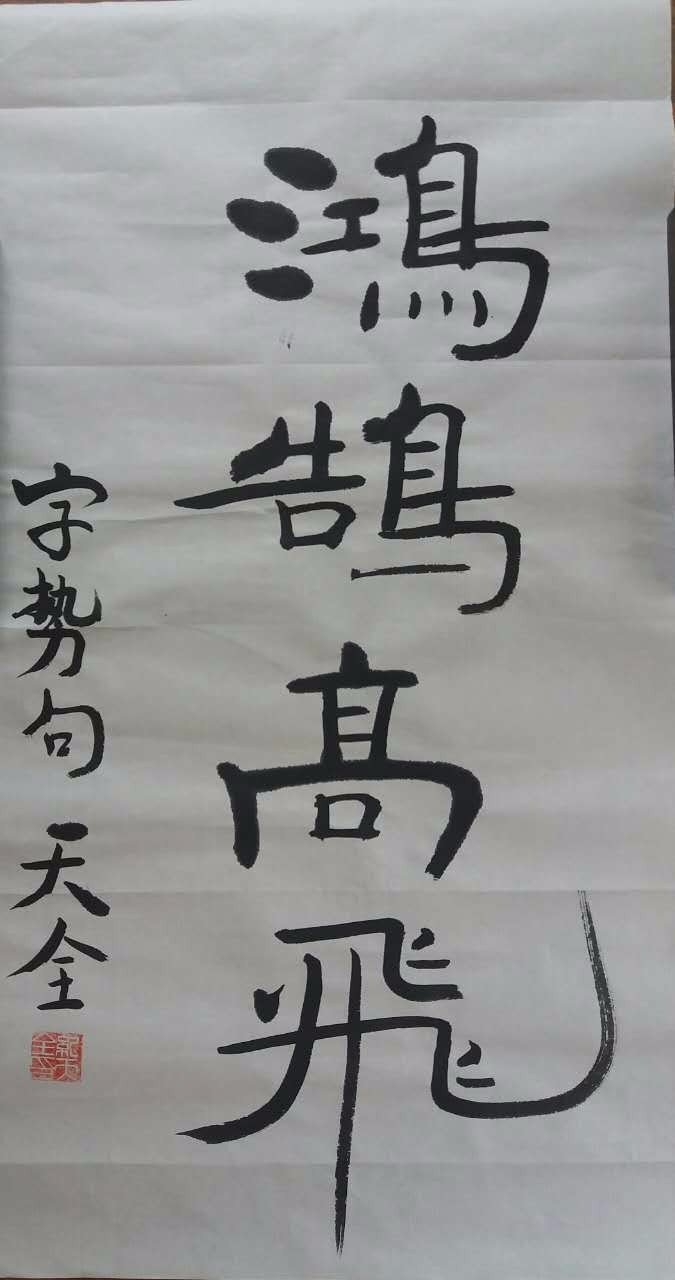 鴻鵠髙飛
字勢句 天全